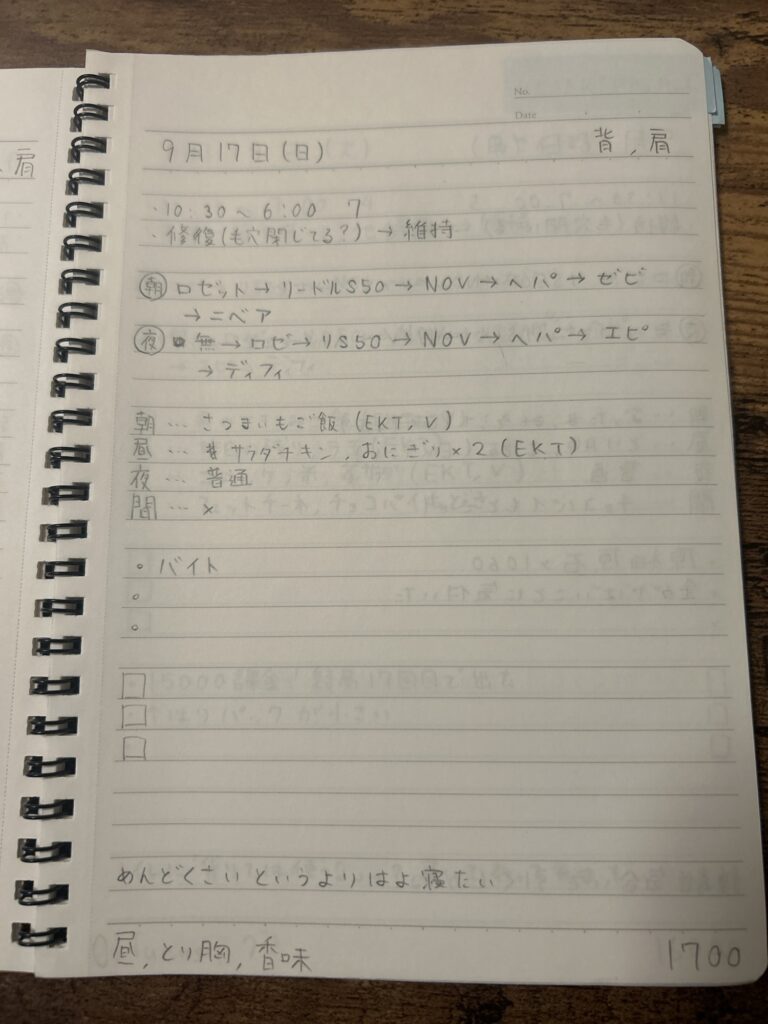 No.
Date
9月17日(日) 背,肩
・10:30〜6:00 7
・修復(毛穴閉じてる?)→維持
朝 ロゼット→リードルS50→NOV→ヘパ→ゼビ
→ニベア
夜 無→ロゼ→リS50→NOV→ヘパ→エピ
→ディフィ
朝…さつまいもご飯(EKT,V)
昼…サラダチキン,おにぎり×2(EKT)
夜…普通
間…×
。バイト
。
。
□
□
□
めんどくさいというよりはよ寝たい
昼,とり胸,香味 1700
肩